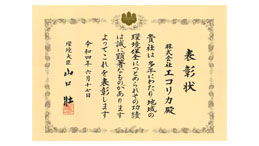 表彰状
株式会社エコリカ殿
貴社は多年にわたり地域の
環境保全につとめられその功績
は誠に顕著なものがあります
よってこれを表彰します
令和四年六月十七日
環境大臣 山口 壯